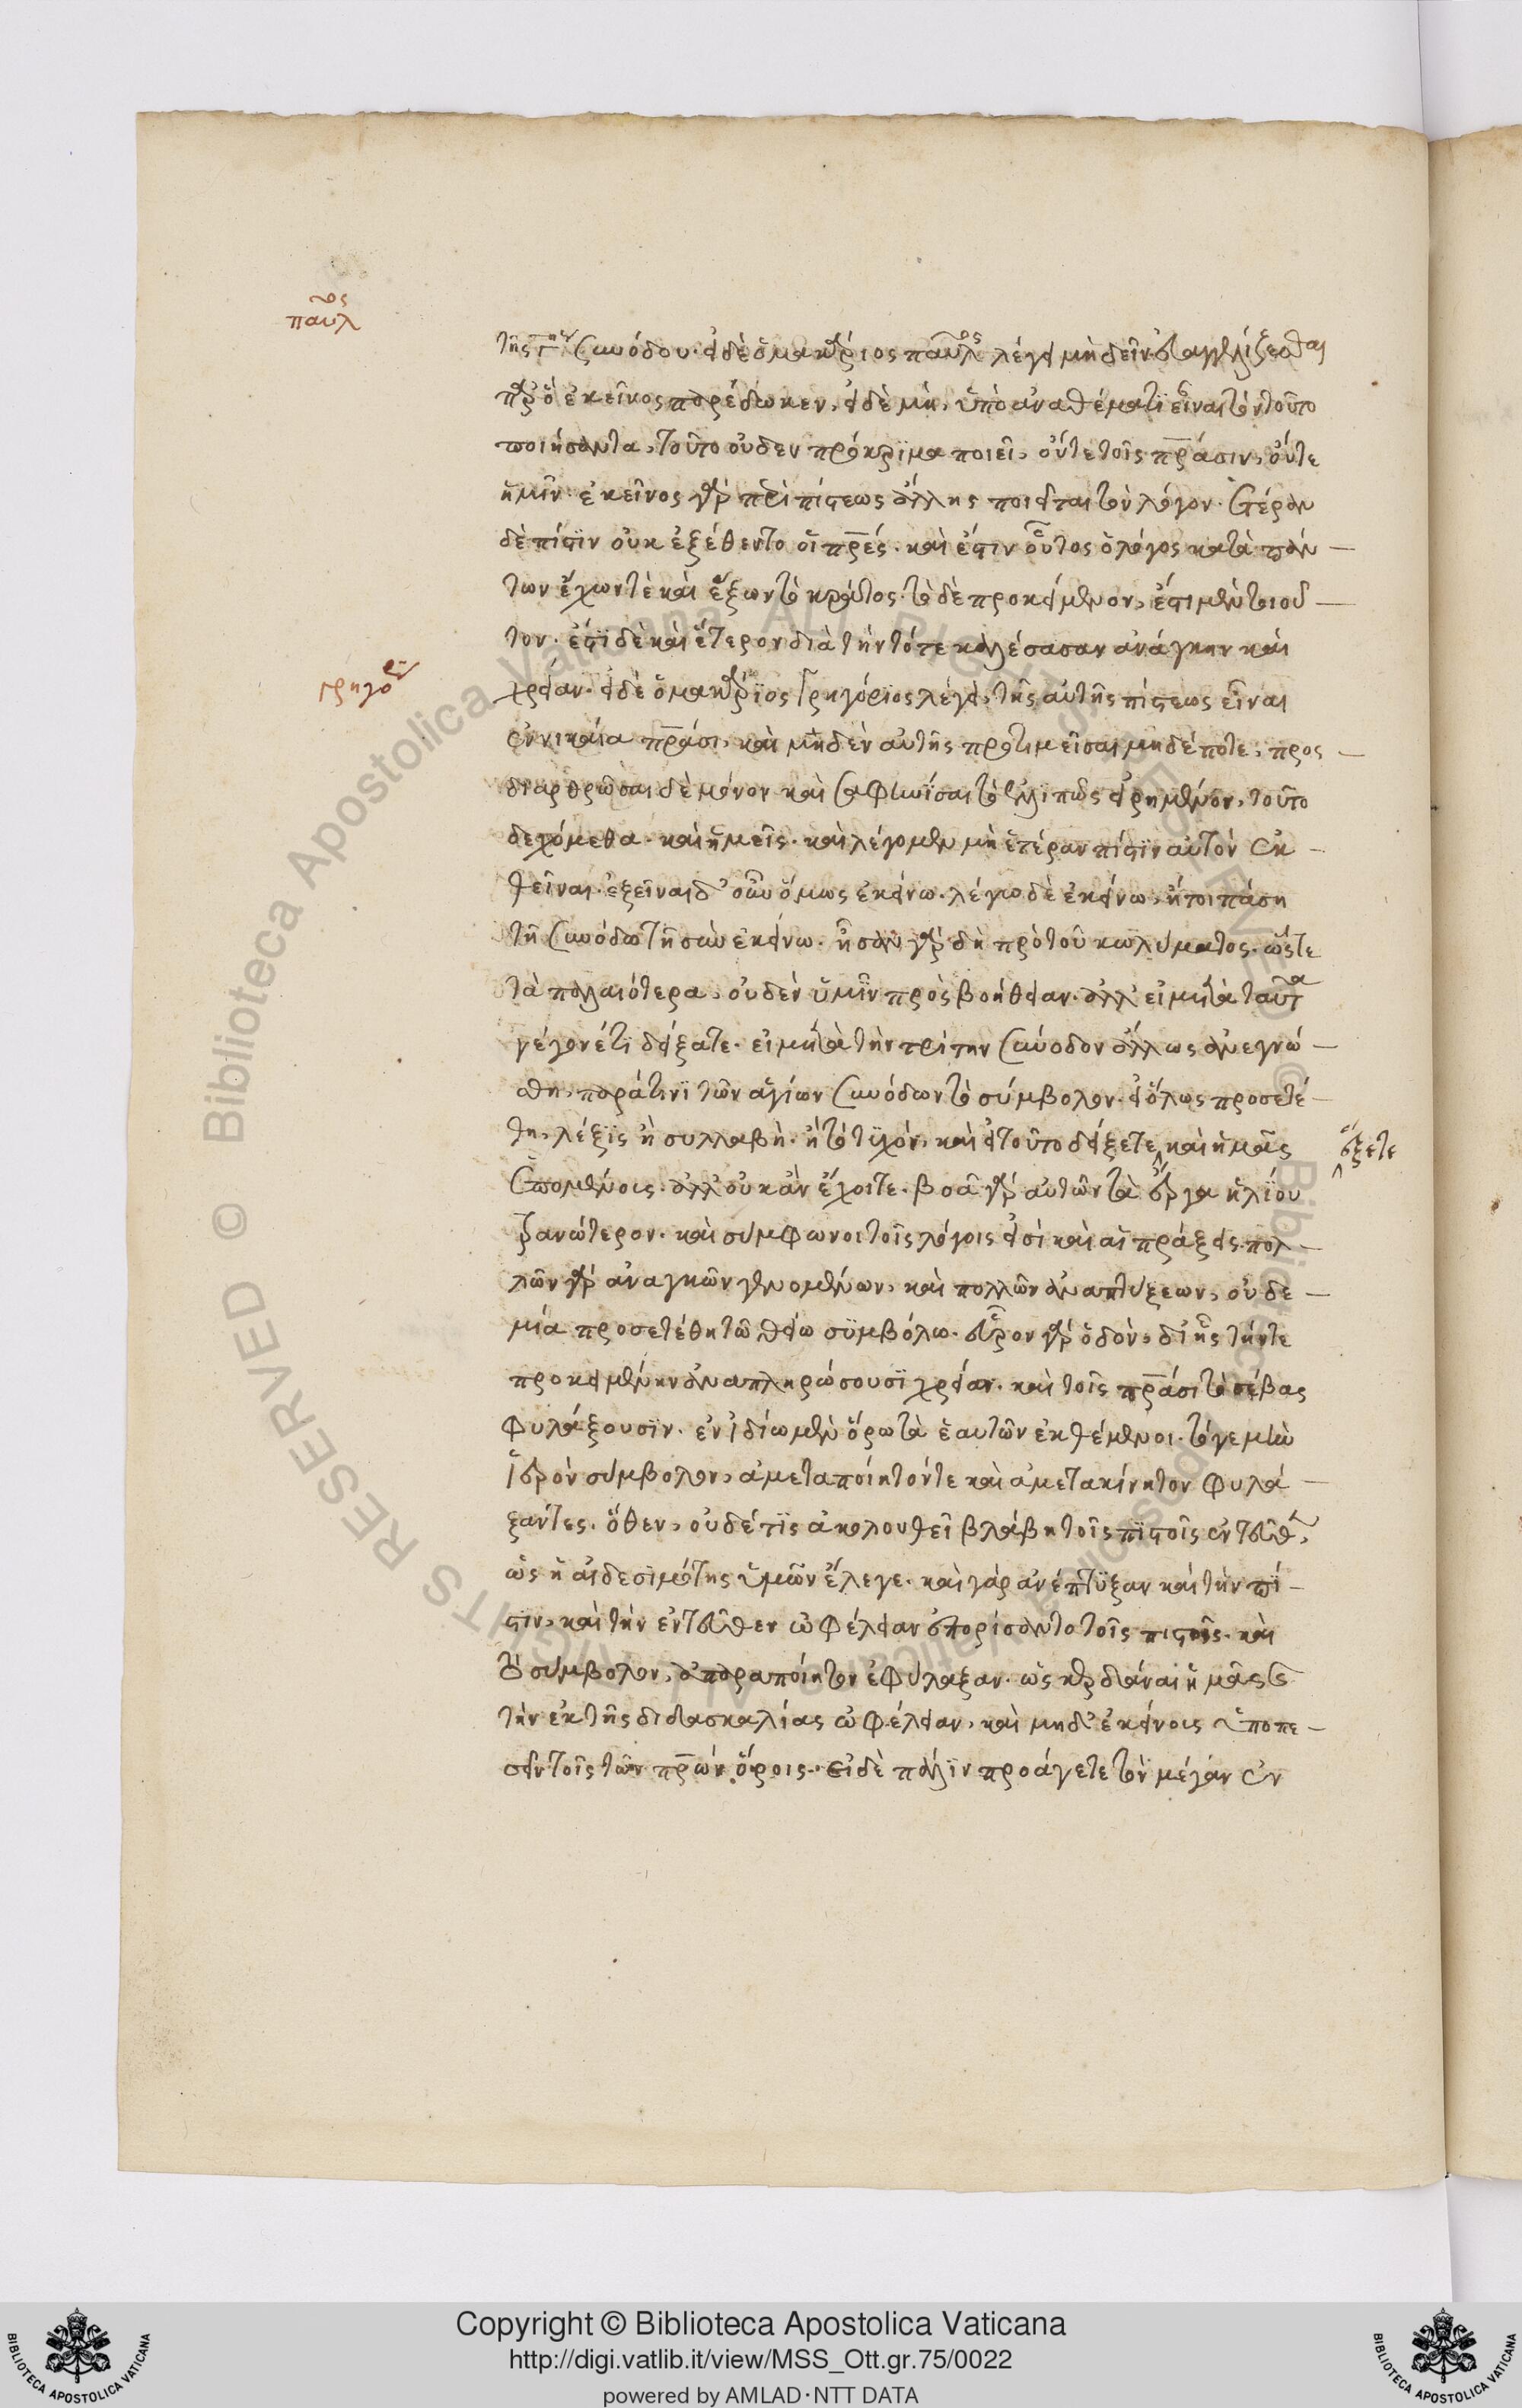 παῦλος
τῆς γης συνόδου. εἰ δὲ ὁ μακάριος παῦλος λέγει μὴ δεῖν εὐαγγελίζεσθαι
παρ' ὃ ἐκεῖνος παρέδωκεν, εἰ δὲ μὴ, ὑπὸ ἀναθέματι εἶναι τὸν τοῦτο
ποιήσαντα, τοῦτο οὐδεν πρόκριμα ποιεῖ, οὔτε τοῖς πράσιν, οὔτε
ἡμῖν. ἐκεῖνος γὰρ περὶ πίστεως ἄλλης ποιεῖται τὸν λόγον. ἑτέραν
δὲ πίστιν οὐκ ἐξέθεντο οἱ πρές. καὶ ἔστιν οὗτος ὁ λόγος κατὰ πάν
των ἔχων τὲ καὶ ἕξων τὸ κράτος. τὸ δὲ προκείμενον, ἔστι μὲν τοιοῦ
τον. ἔστι δὲ καὶ ἕτερον διὰ τὴν τότε καλέσασαν ἀνάγκην καὶ
γρηγο
χρείαν. εἰ δὲ ὁ μακάριος Γρηγόριος λέγει, τῆς αὐτῆς πίστεως εἶναι
ἐν νικαία πράσι, καὶ μηδὲν αὐτῆς προτιμεῖσαι μηδέποτε, προς
διαρθρῶσαι δὲ μόνον καὶ σαφηνίσαι τὸ ἐλλιπῶς εἰρημένον, τοῦτο
δεχόμεθα. καὶ ἡμεῖς. καὶ λέγομεν μὴ ἑτέραν πίστιν αὐτὸν ἐκ
θεῖναι. ἐξεῖναι δ' οὖν ὅμως ἐκείνω. λέγω δὲ ἐκείνω, ἤτοι πάση
τῆ συνόδω τῆ σὺν ἐκείνω. ἦσαν γὰρ δὴ πρὸ τοῦ κωλύματος. ὥστε
τὰ παλαιότερα, οὐδὲν ὑμῖν πρὸς βοήθειαν. ἀλλ' εἰ μετὰ ταῦτα
γέγονέ τι δείξατε. εἰ μετὰ τὴν τρίτην σύνοδον ἄλλως ἀνεγνώ
σθη, παρά τινι τῶν ἁγίων συνόδων τὸ σύμβολον. εἰ ὅλως προσετέ
θη, λέξις ἢ συλλαβὴ. ἢ τὸ τυχόν, καὶ εἰ τοῦτο δείξετε, καὶ ἡμᾶς
ἕξετε
ἑπομένοις. ἀλλ' οὐκ ἂν ἔχοιτε. βοᾶ γὰρ αὐτῶν τὰ ἔργα ἡλίου
τρανώτερον. καὶ σύμφωνοι τοῖς λόγοις εἰσὶ καὶ αἱ πράξεις. πολ
λῶν γὰρ ἀναγκῶν γενομένων, καὶ πολλῶν ἀναπτύξεων, οὐδε
μία προσετέθη τῶ θείω συμβόλω. εὗρον γὰρ ὁδὸν, δι' ἧς τήν τε
προκειμένην ἀναπληρώσουσι χρείαν. καὶ τοῖς πράσι τὸ σέβας
φυλάξουσιν. ἐν ἰδίω μὲν ὅρω τὰ ἑαυτῶν ἐκθέμενοι. τό γε μὴν
ἱερὸν σύμβολον, ἀμεταποίητόν τε καὶ ἀμετακίνητον φυλά
ξαντες. ὅθεν, οὐδέ τις ἀκολουθεῖ βλάβη τοῖς πιστοῖς ἐντεῦθεν,
ὡς ἡ αἰδεσιμότης ὑμῶν ἔλεγε. καὶ γὰρ ἀνέπτυξαν καὶ τὴν πί
στιν, καὶ τὴν ἐντεῦθεν ὠφέλειαν ἐπορίσαντο τοῖς πιστοῖς. καὶ
τὸ σύμβολον, ἀπαραποίητον ἐφύλαξαν. ὡς κερδάναι ἡμᾶς
τὴν ἐκ τῆς διδασκαλίας ὠφέλειαν, καὶ μηδ' ἐκείνοις ὑποπε
σεῖν τοῖς τῶν πρων ὅροις. Εἰ δὲ πάλιν προάγετε τὸν μέγαν ἐν
Copyright © Biblioteca Apostolica Vaticana
http://digi.vatlib.it/view/MSS_Ott.gr.75/0022
powered by AMLAD·NTT DATA